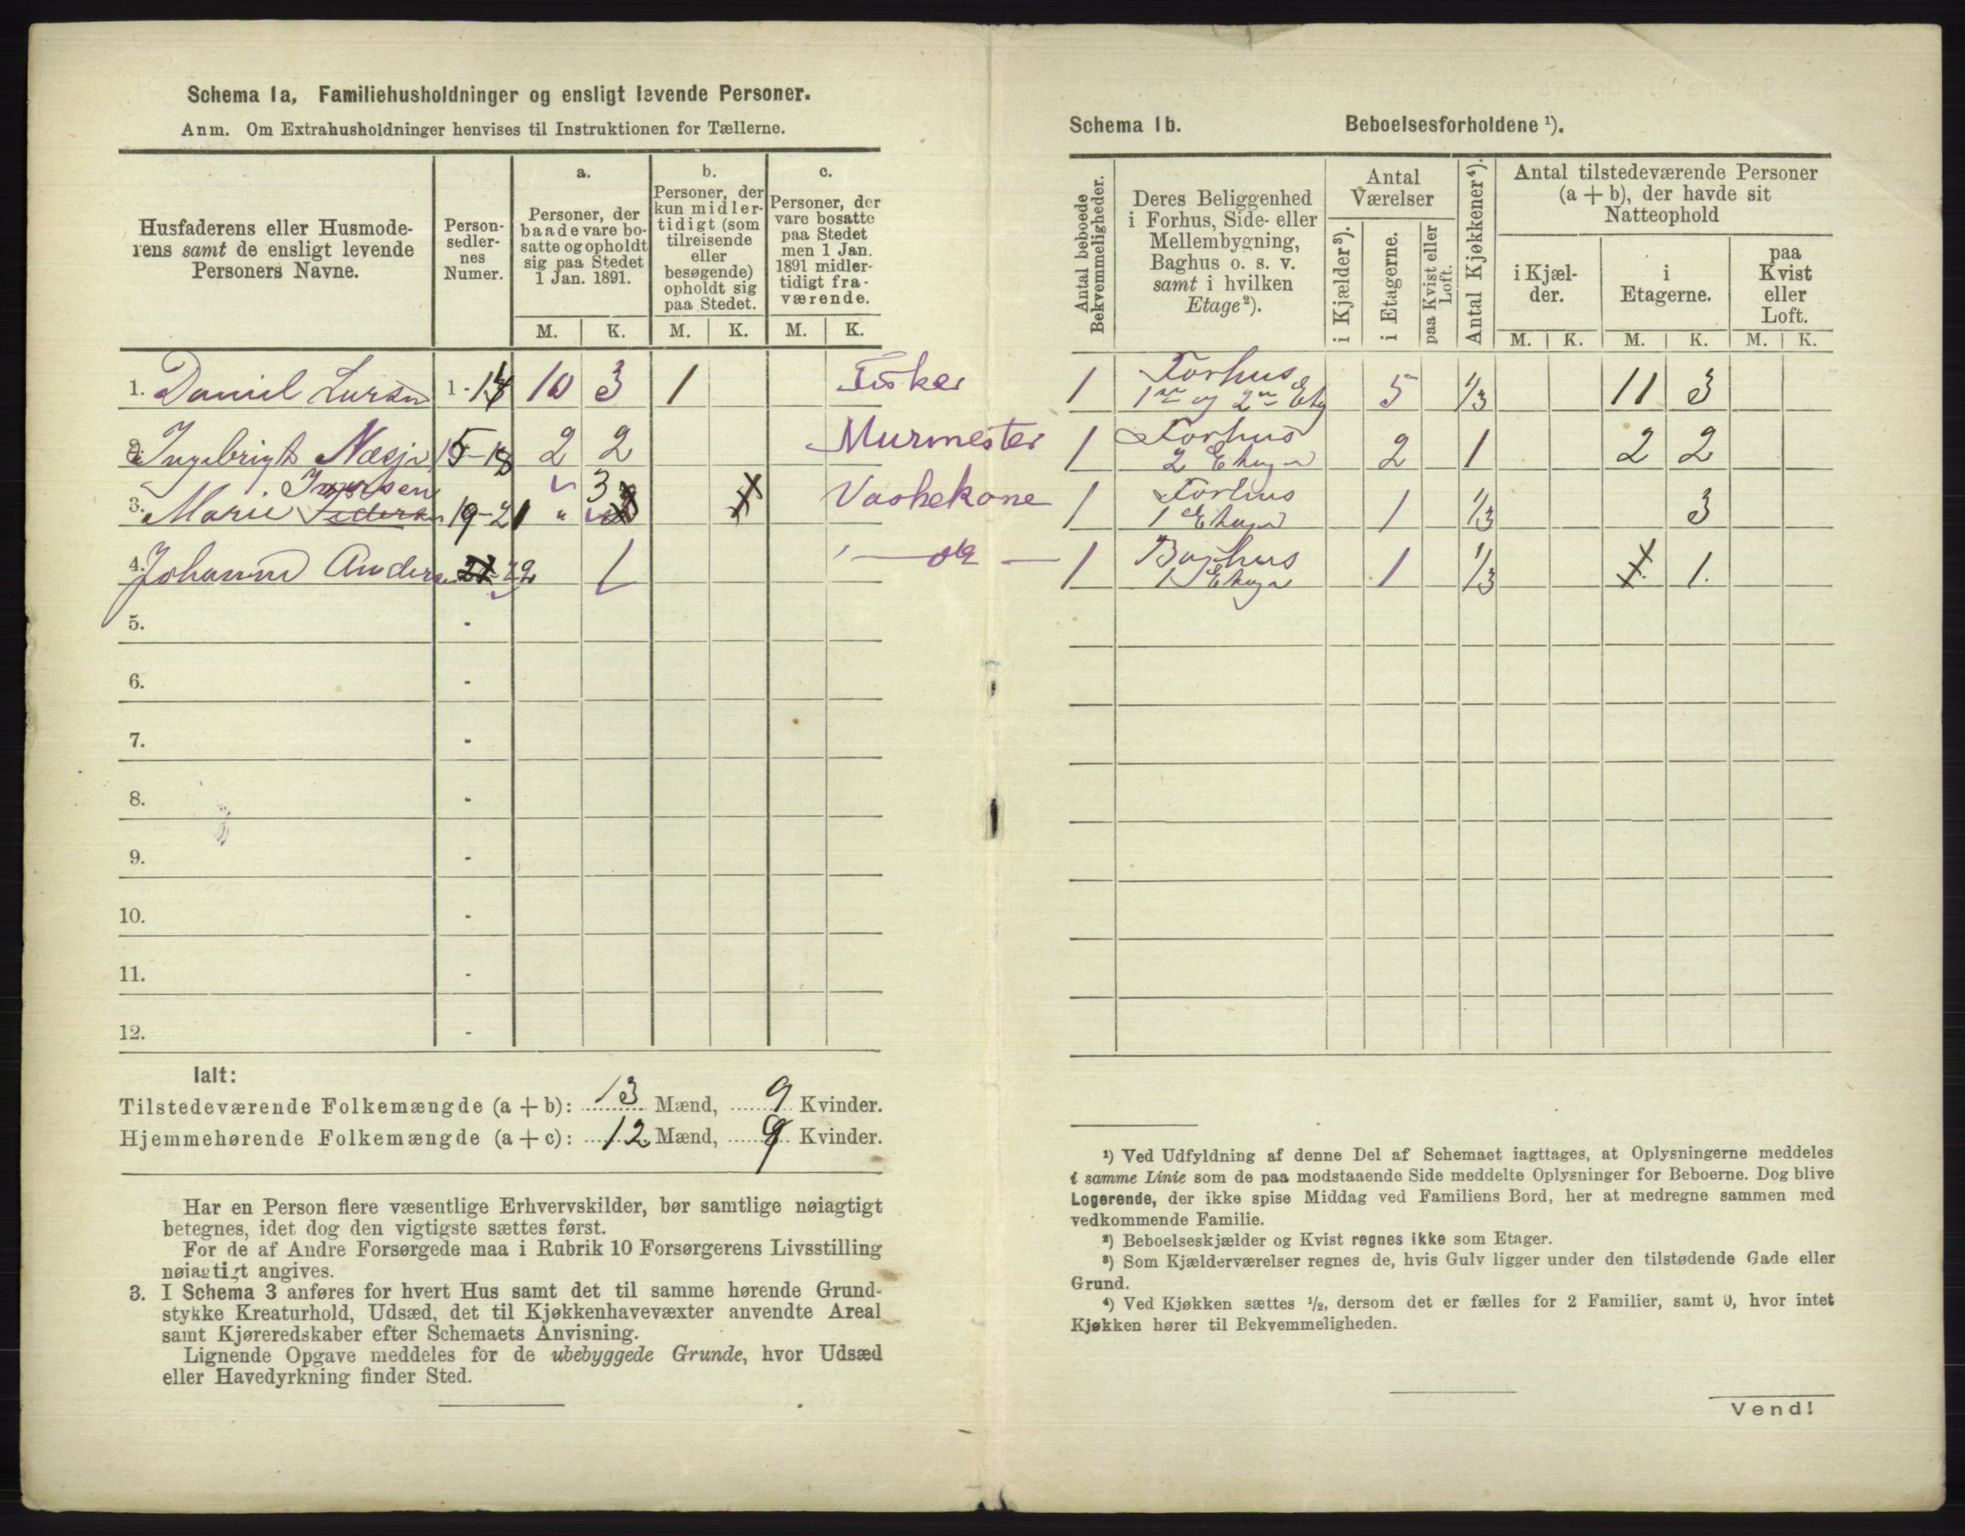 Schema 1a, Familiehusholdninger og ensligt levende Personer.
Anm. Om Extrahusholdninger henvises til Instruktionen for Tællerne.
Husfaderens eller Husmode-
rens samt de ensligt levende
Personers Navne.
Person-
sedler-
nes
Numer.
a.
Personer, der
baade vare bo-
satte og opholdt
sig paa Stedet
1 Jan. 1891.
b.
Personer, der
kun midler-
tidigt (som
tilreisende
eller
besøgende)
opholdt sig
paa Stedet.
c.
Personer, der
vare bosatte
paa Stedet
men 1 Jan.
1891 midler-
tidigt fra-
værende.
M. K. M. K. M. K.
1. Daniel Larsen 1-14 10 3 1 Fisker
2. Ingebrigt Næsje 15-18 2 2 Murmester
Iversen 3
3. Marie Pedersen 19-21 " Vaskekone
4. Johanne Anders 22 1 " do
5. -
6. -
7. -
8. -
9. -
10. -
11. -
12. -
Ialt:
Tilstedeværende Folkemængde (a + b): 13 Mænd, 9 Kvinder.
Hjemmehørende Folkemængde (a + c): 12 Mænd, 9 Kvinder.
Har en Person flere væsentlige Erhvervskilder, bør samtlige nøiagtigt
betegnes, idet dog den vigtigste sættes først.
For de af Andre Forsørgede maa i Rubrik 10 Forsørgerens Livsstilling
nøiagtigt angives.
3. I Schema 3 anføres for hvert Hus samt det til samme hørende Grund-
stykke Kreaturhold, Udsæd, det til Kjøkkenhavevæxter anvendte Areal
samt Kjøreredskaber efter Schemaets Anvisning.
Lignende Opgave meddeles for de ubebyggede Grunde, hvor Udsæd
eller Havedyrkning finder Sted.
Schema 1b. Beboelsesforholdene ¹).
Antal beboede
Bekvemmeligheder.
Deres Beliggenhed
i Forhus, Side- eller
Mellembygning,
Baghus o. s. v.
samt i hvilken
Etage²).
Antal
Værelser
i Kjælder³).
i Etagerne.
paa Kvist eller
Loft.
Antal Kjøkkener⁴).
Antal tilstedeværende Personer
(a + b), der havde sit
Natteophold
i Kjæl-
der.
i
Etagerne.
paa
Kvist
eller
Loft.
M. K. M. K. M. K.
1 Forhus 5 1/3 11 3
1ste og 2den Etg
1 Forhus 2 1 2 2
2 Etage
1 Forhus 1 1/3 3
1 Etage
1 Baghus 1 1/3 1.
1 Etage
¹) Ved Udfyldning af denne Del af Schemaet iagttages, at Oplysningerne meddeles
i samme Linie som de paa modstaaende Side meddelte Oplysninger for Beboerne. Dog blive
Logerende, der ikke spise Middag ved Familiens Bord, her at medregne sammen med
vedkommende Familie.
²) Beboelseskjælder og Kvist regnes ikke som Etager.
³) Som Kjælderværelser regnes de, hvis Gulv ligger under den tilstødende Gade eller
Grund.
⁴) Ved Kjøkken sættes ½, dersom det er fælles for 2 Familier, samt 0, hvor intet
Kjøkken hører til Bekvemmeligheden.
Vend!